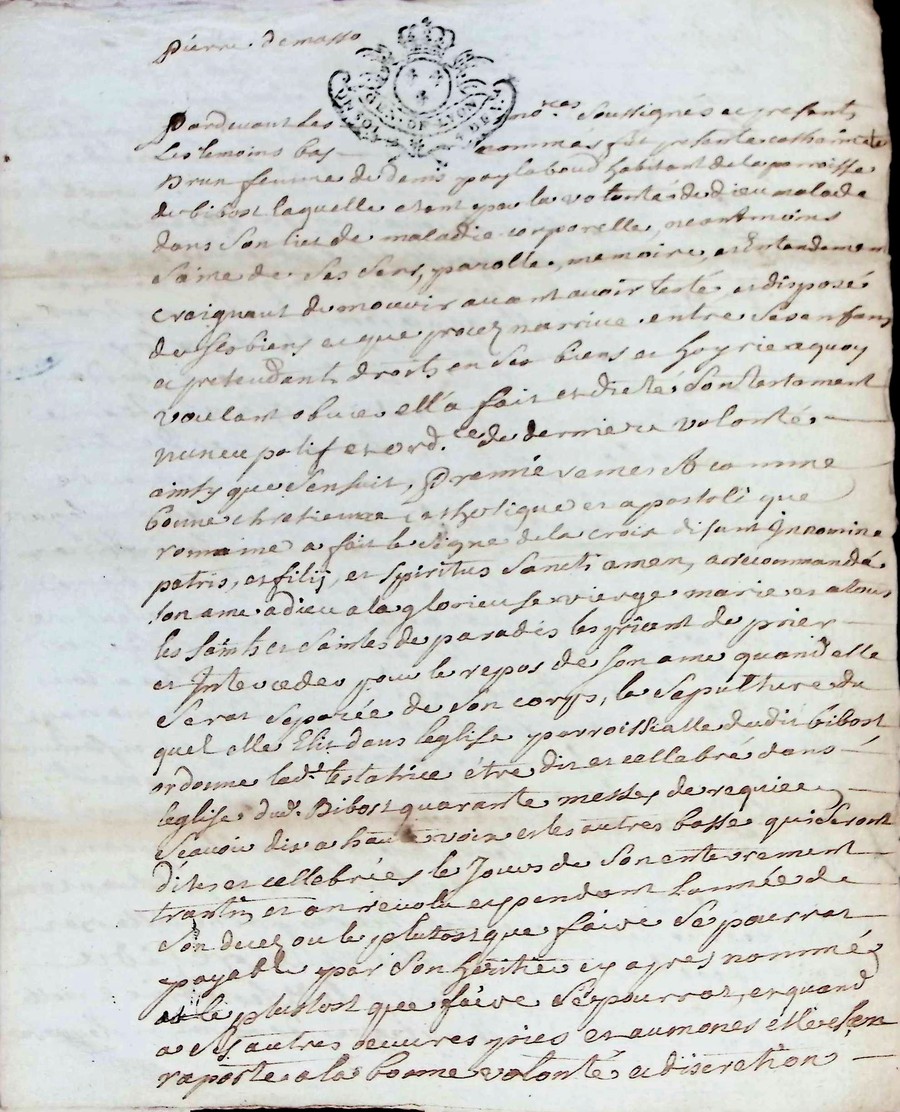 Pierre demasso
UN SOL GEN. DE LYON
Pardevant Les no.res Soussignés et presents
Les temoins bas nommés fut presente catherine
Brun femme de denis paylaboud habitant de la parroisse
de bibost laquelle etant par la volonté de dieu malade
dans son lict de maladie corporelle, neantmoins
saine de ses sens, parolle, memoire, et Entendement
craignant de mourir avant avoir testé, et disposé
de ses biens et que procez narrive entre ses enfans
et pretendants droits en ses biens et hoyrie a quoy
voulant obvier ell'a fait et dicté son testament
nuncupatif et ord.ce de derniere volonté
ainsy que s'ensuit, Premierement A comme
bonne chretienne catholique et apostolique
romaine a fait le signe de la croix disant In nomine
patris, et filij, et spiritus sancti amen, a recommandé
son ame a dieu a la glorieuse vierge marie et a tous
les saints et saintes de paradis les priant de prier
et Interceder pour le repos de son ame quand elle
serat separée de son corps, la sepulture du
quel elle Elit dans leglise parroissialle dudit bibost
ordonne lad.e testatrice être dit et cellebré dans
leglise dud. Bibost quarante messes de requiem
scavoir dix a haute voix et les autres basse qui seront
dites et cellebrées le jour de son enterrement
trantin et an revolu et pendant l'année de
son decez ou le plutost que faire se pourrat
payable par son heritier cy apres nommé
le plutost que faire se pourrat, et quand
a ses autres oeuvres pies et aumones elle s'en
raporte a la bonne volonté et discretion